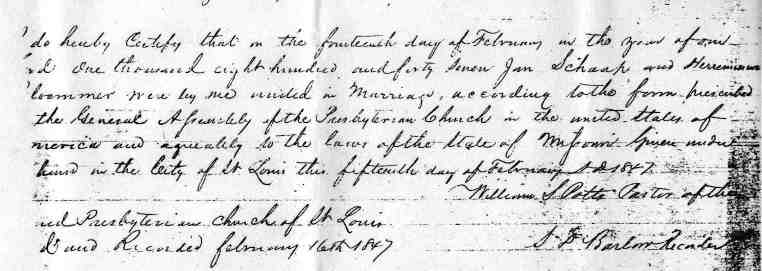 do hereby Certify that on the fourteenth day of February in the year of our
one thousand eight hundred and forty seven Jan Schaap and
were by me united in Marriage, according to the form prescribed
the General Assembly of the Presbyterian Church in the united States of
merica and agreeably to the laws of the State of Missouri Given under
hand in the City of St Louis this fifteenth day of February A D 1847
William S Potts Pastor of the
nd Presbyterian church of St Louis
D and Recorded february 16th 1847
S D Barlow Recorder